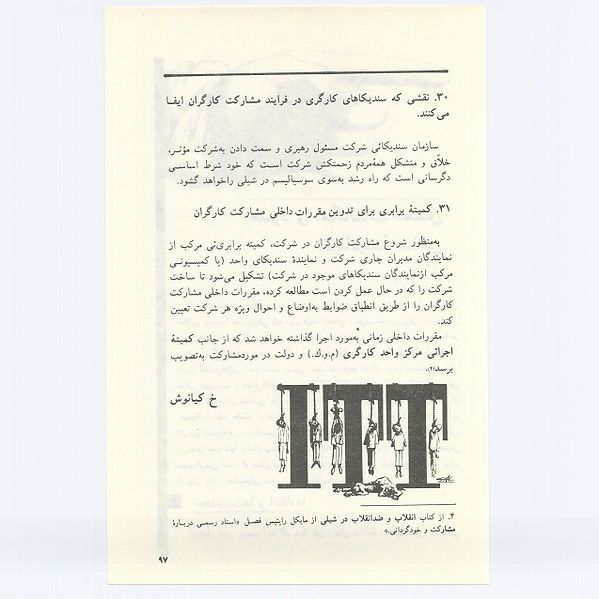 ۳۰. نقشی که سندیکاهای کارگری در فرایند مشارکت کارگران ایفـا
می‌کنند.
سازمان سندیکائی شرکت مسئول رهبری و سمت دادن به‌شرکت مؤثـر،
خلاّق و متشکل همهٔ‌مردم زحمتکش شرکت اسـت که خود شرط اساسـی
دگرسانی است که راه رشد به‌سوی سوسیالیسم در شیلی راخواهد گشود.
۳۱. کمیتهٔ برابری برای تدوین مقررات داخلی مشارکت کارگران
به‌منظور شروع مشارکت کارگران در شرکت، کمیته برابری‌ئی مرکب از
نمایندگان مدیران جاری شرکت و نمایندهٔ سندیکای واحد (یا کمیسیونـی
مرکب ازنمایندگان سندیکاهای موجود در شرکت) تشکیل می‌شود تا ساخت
شرکت را که در حال عمل کردن است مطالعه کرده، مقررات داخلی مشارکت
کارگران را از طریق انطباق ضوابط به‌اوضاع و احوال ویژه هر شرکت تعیین
کند.
مقررات داخلی زمانی به‌مورد اجرا گذاشته خواهد شد که از جانب کمیتهٔ
اجرائی مرکز واحد کارگری (م.و.ک.) و دولت در موردمشارکت به‌تصویب
برسد(۲).
خ کیانوش
ITT
۴. از کتاب انقلاب و ضدانقلاب در شیلی از مایکل رایتیس فصـل «اسناد رسمـی دربـارهٔ
مشارکت و خودگردانی.»
۹۷